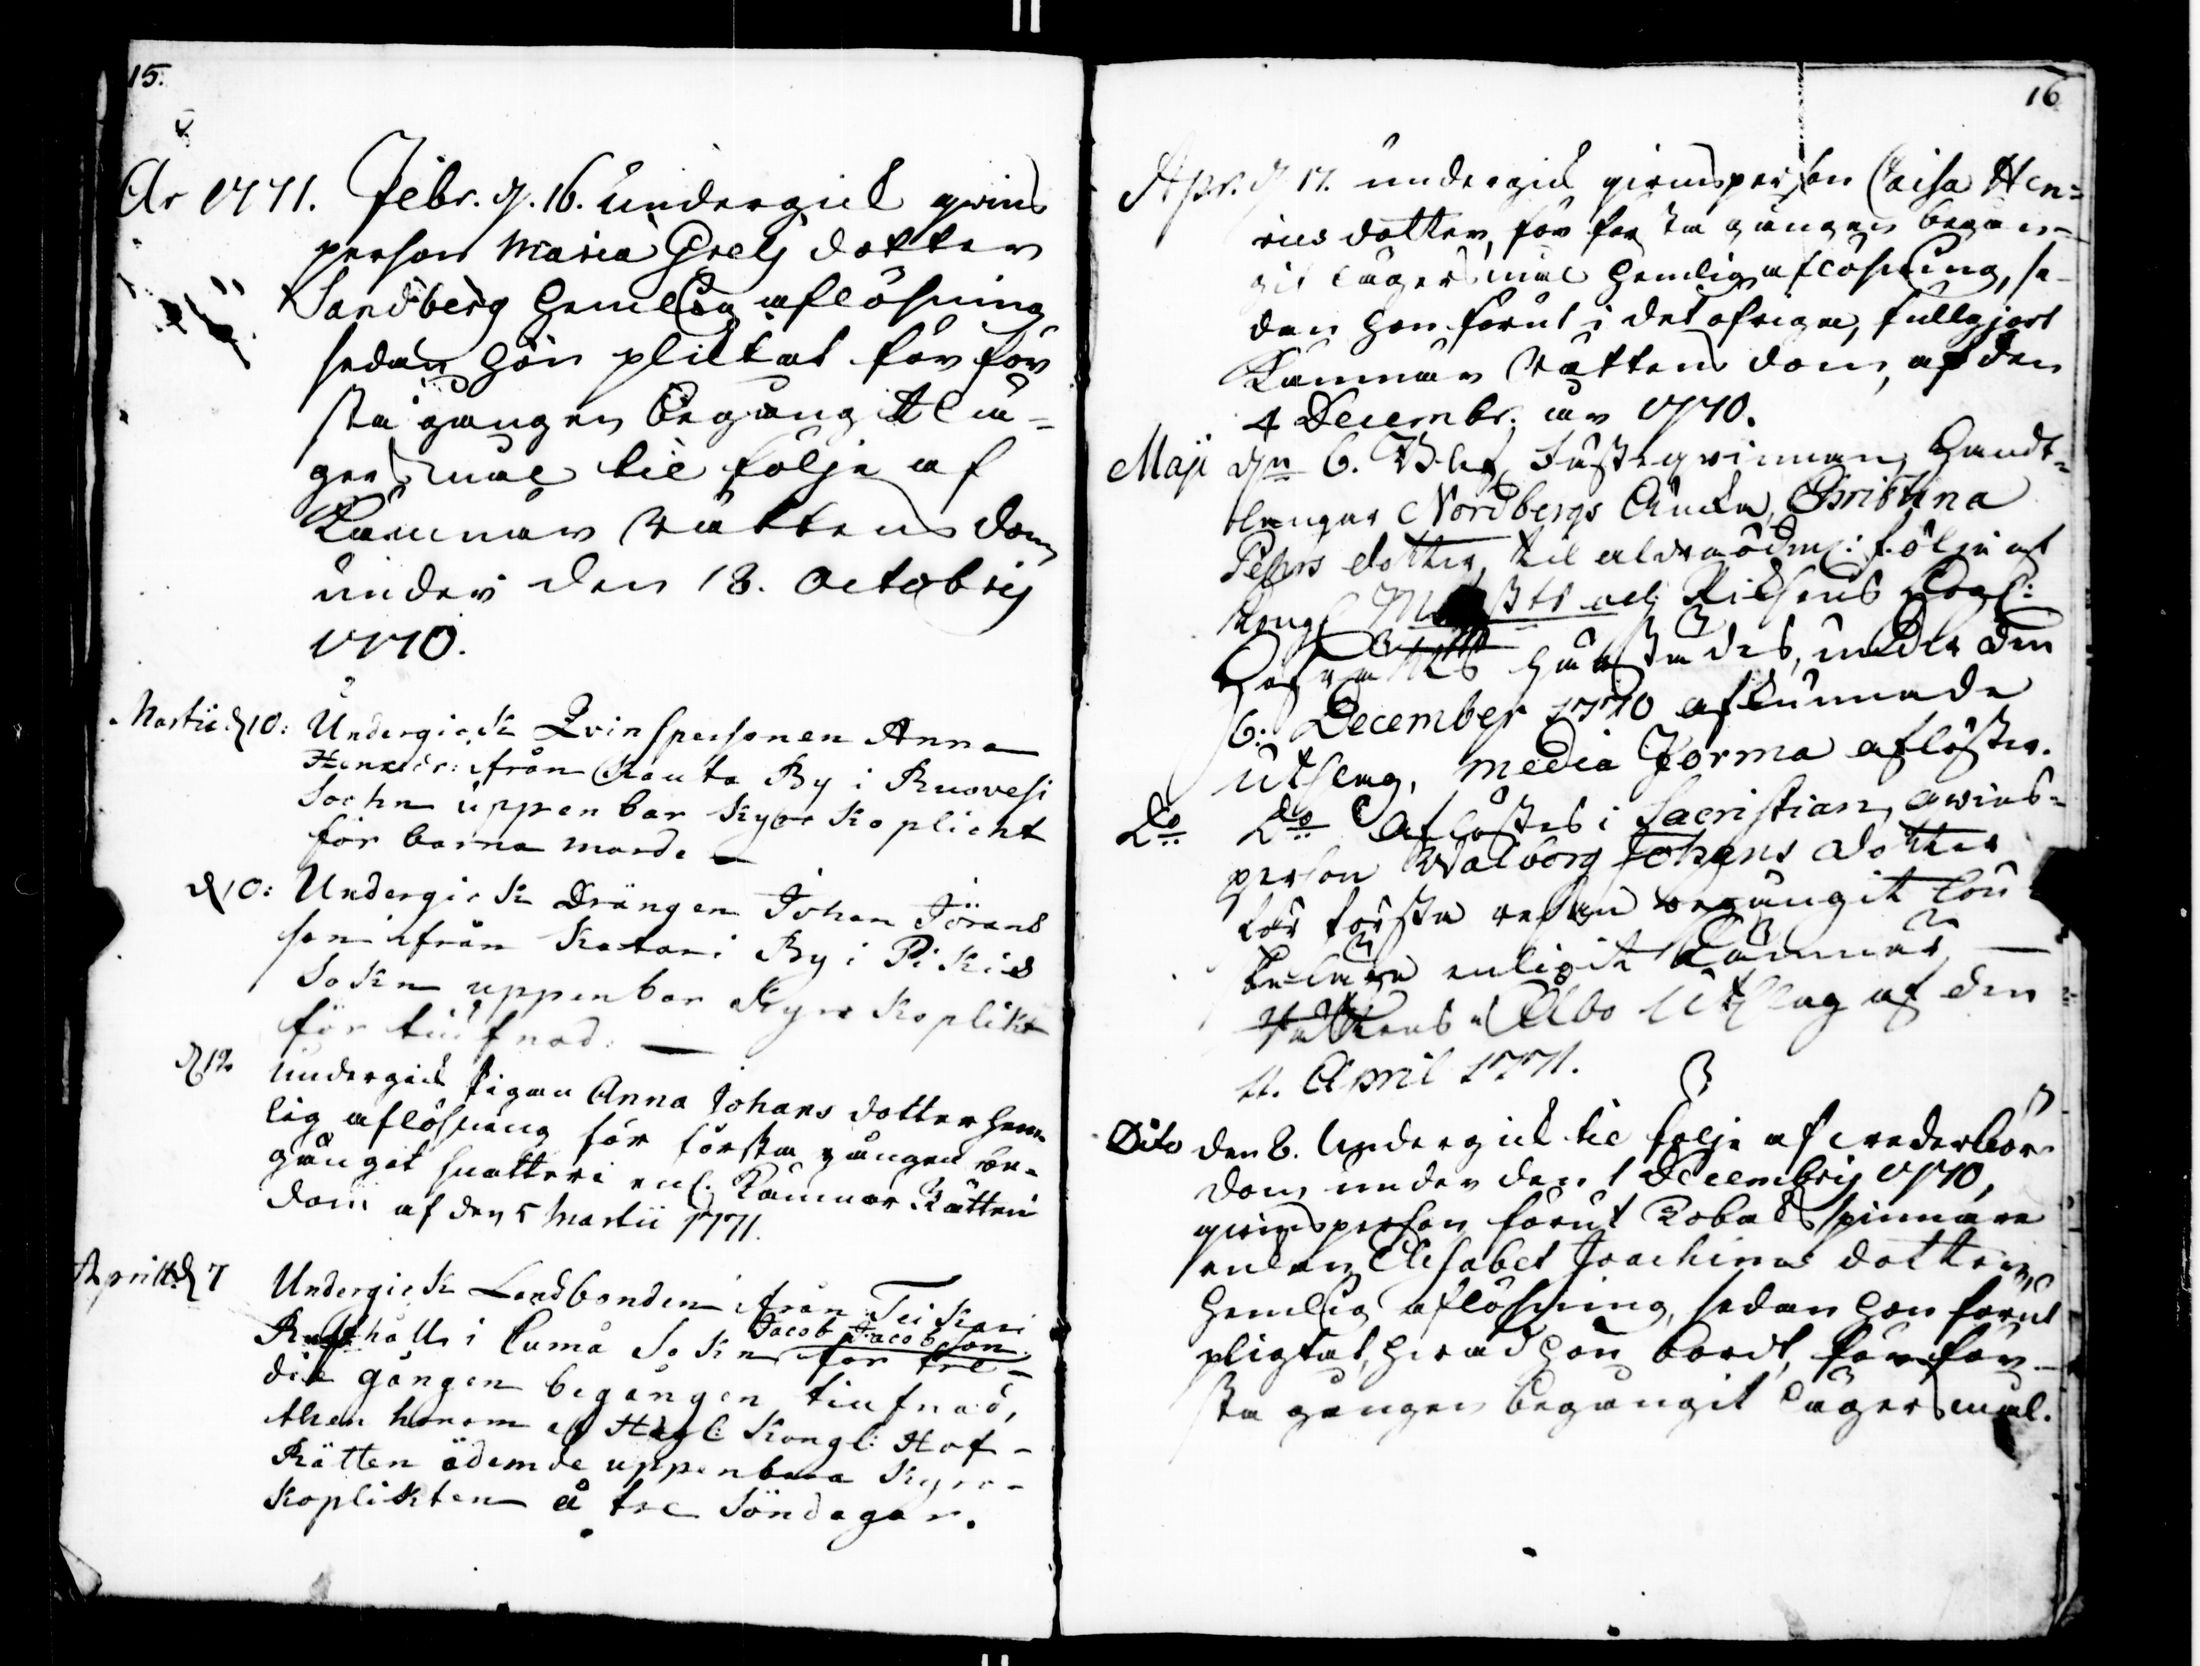 15.
År 1771. Febr. d. 16. undergick qwins
person Maria Grels dotter
Sandberg hemlig aflösning
sedan hon pliktat för för
sta gången begångit lä-
gersmål til följe af
Kämnärs Rättens dom
under den 18. Octobris
1770.
Martii d 10: Undergick Qvinspersonen Anna
Henricsd: ifrån Kauto By i Ruovesi
Sochn uppenbar Kyrkoplicht
för barna mord.
d 10: Undergick Drängen Johan Jörans
son ifrån Katari By i Pikis
Sokn uppenbar Kyrkoplikt
för tiufnad.
d 12 Undergick pigan Anna Johans dotter hem
lig aflösning för första gången be-
gångit snatteri enl. Kämnärs Rättens
dom af den 5 Martii 1771.
Aprill d 7 Undergick Landbonden ifrån Teikari
Jacob Jacobson
Rusthåll i Lumå Sokn för tre-
die gången begången tiufnad,
then honom af Högl: Kongl: Hof-
Rätten ådömde uppenbara Kyro-
koplikten å tre Söndagar.
16
Apr. d 17. undergick qwinsperson Caisa Hen-
rics dotter, för första gången begån-
git lägersmål hemlig aflösning, se-
dan hon förut i det öfriga, fullgjort
Kämnärs Rättens dom, af den
4 Decembr. år 1770.
Maji dn 6. Blef Hustru qwinnan, Handt-
langar Nordbergs Änka, Christina
Pehrs dotter, til alraödmj: följe af
Kongl Maijsts och Riksens Högl:
Hof Rätts härstädes, under den
6. December 1770 afkunnade
Utslag, media Forma aflöster.
Do Do Aflöstes i Sacristian, qwins-
person Walborg Johans dotter
för första resan begångit lön-
skeläge enligit Kämnärs
Rättens i Åbo Utslag af den
11. April 1771.
Dito den 8. Undergick til följe af wederbör.
dom under den 1 Decembris 1770,
qwinsperson förut Tobaksspinnare
enkan Elisabet Joachims dotter,
hemlig aflösning, sedan hon förut
pligtat, hwad hon bordt, för för-
sta gången begångit lägersmål.